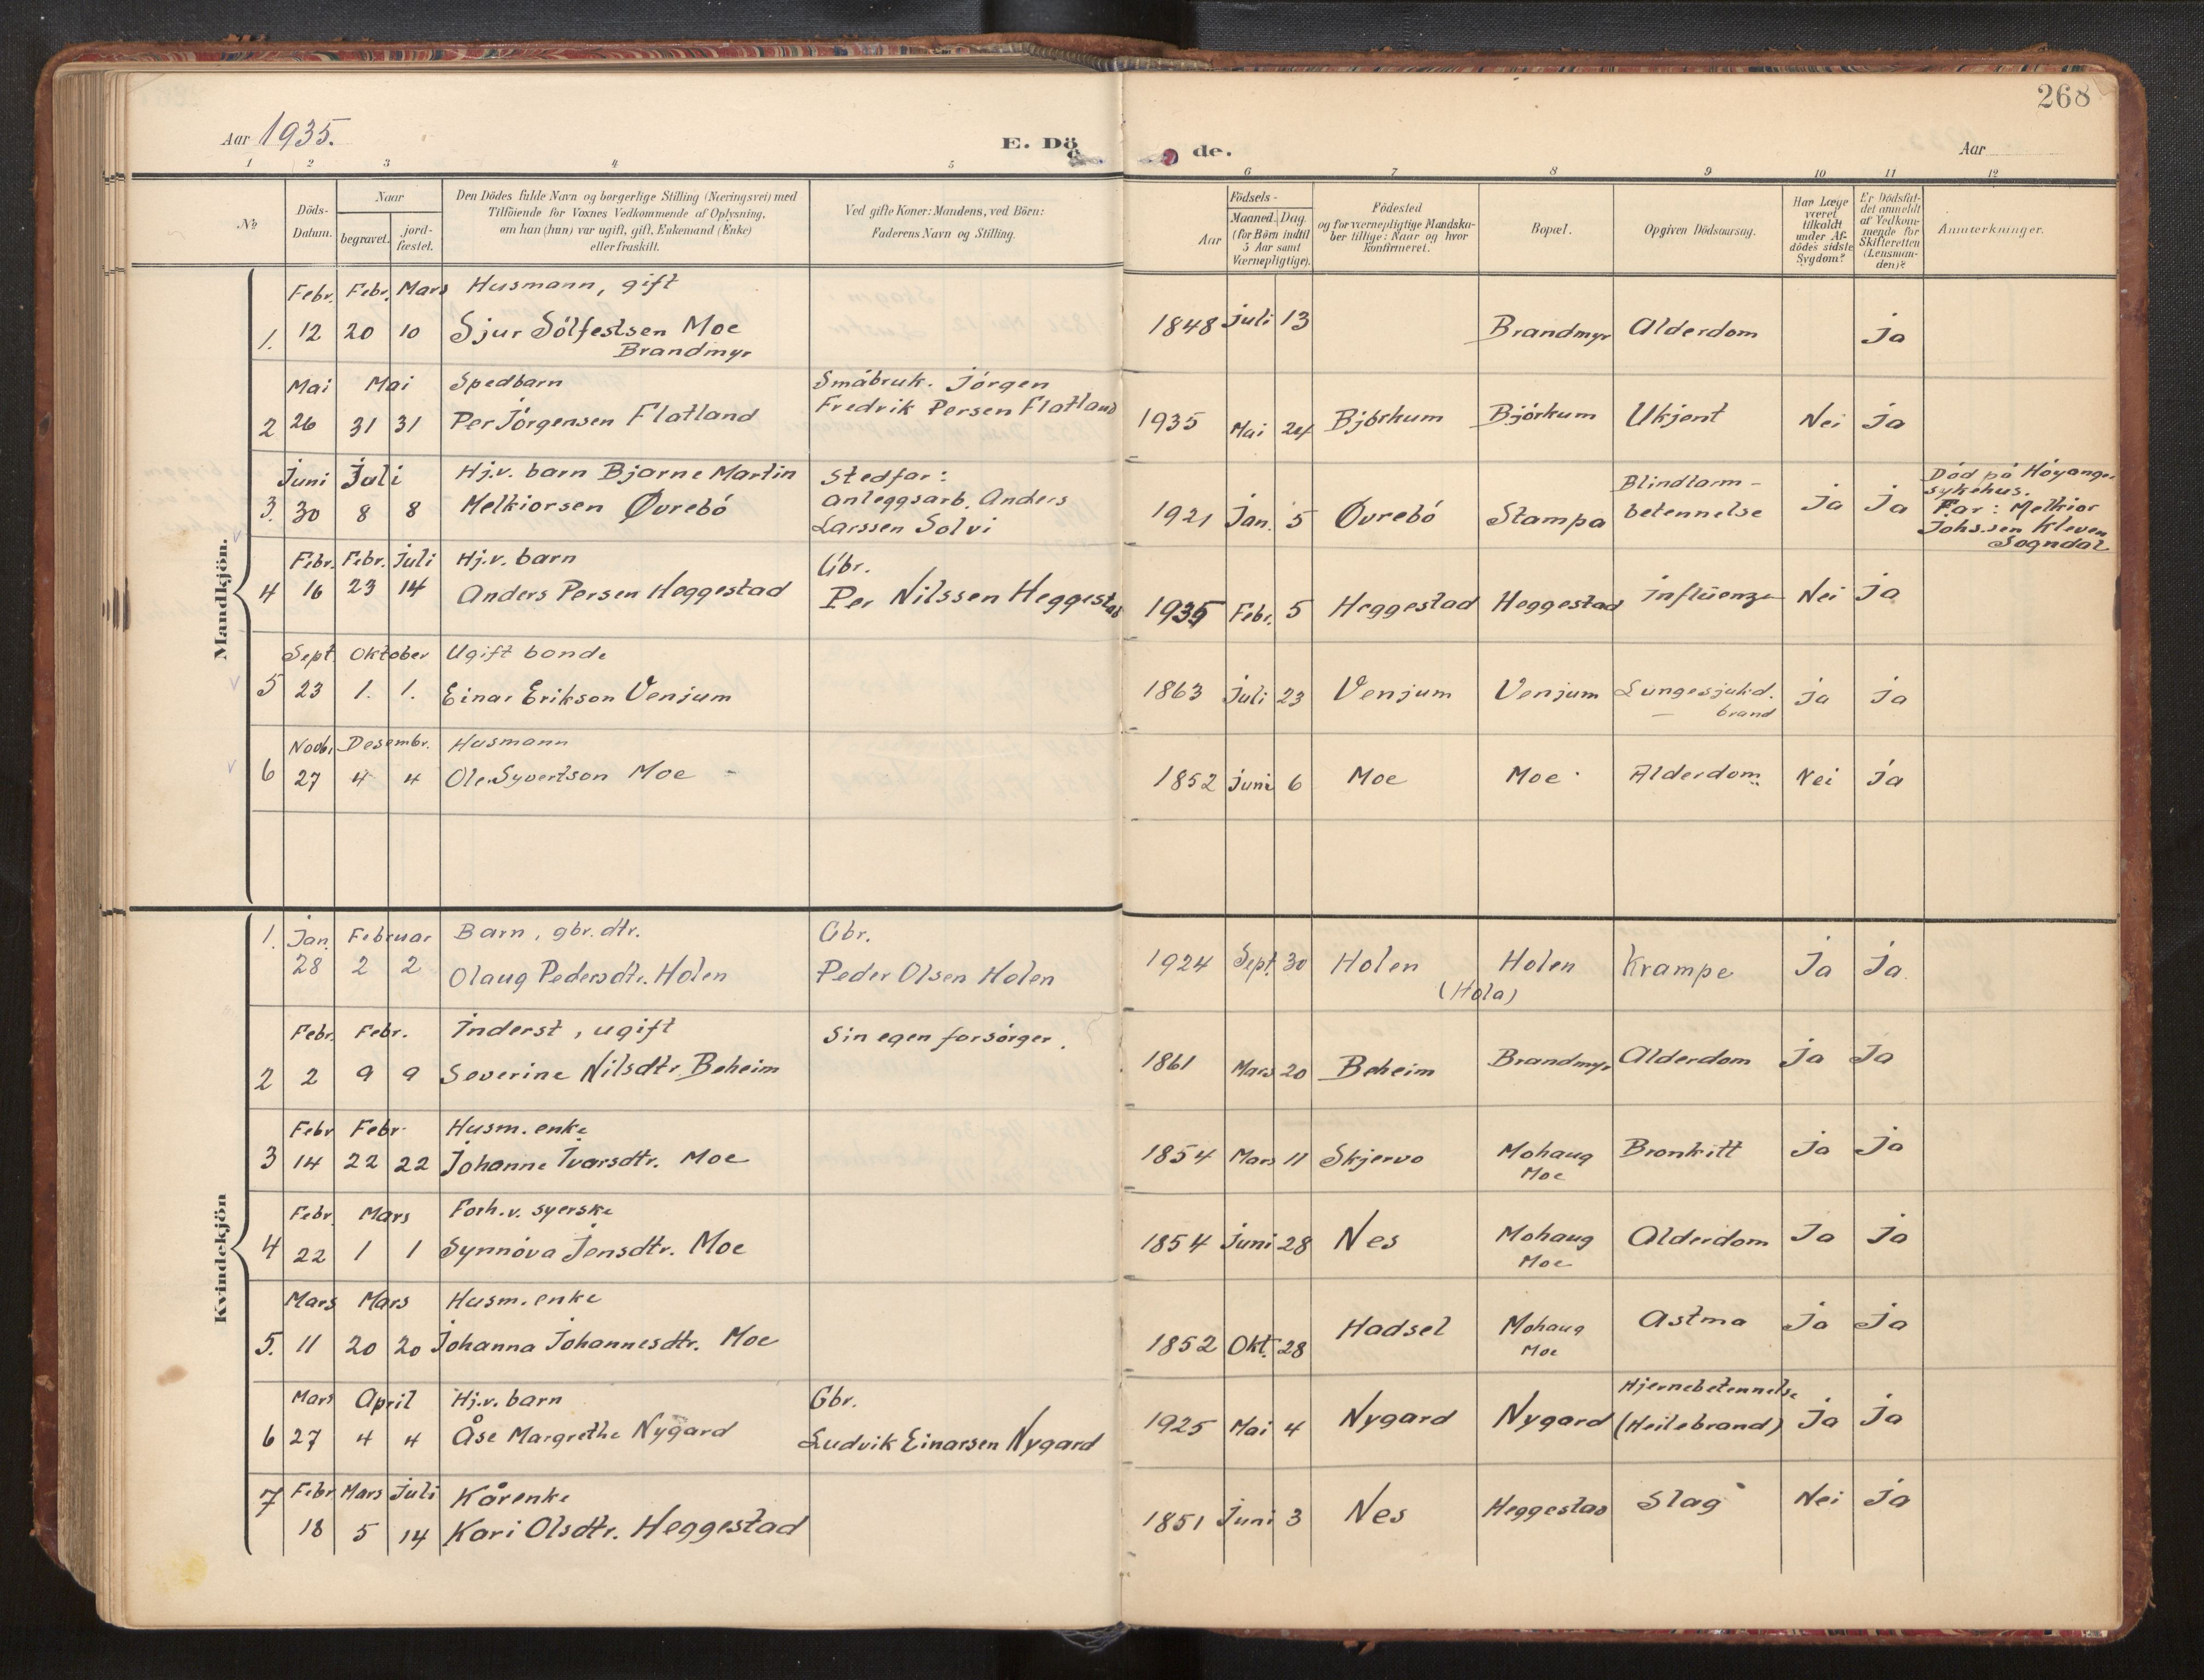 268
Aar 1935.
E. Dö
de.
Aar
1 2 3 4 5 6 7 8 9 10 11 12
No
Döds-
Datum.
Naar
begravet.
jord-
fæstet.
Den Dödes fulde Navn og borgerlige Stilling (Næringsvei) med
Tilföiende for Voxnes Vedkommende af Oplysning,
om han (hun) var ugift, gift, Enkemand (Enke)
eller fraskilt.
Ved gifte Koner: Mandens, ved Börn:
Faderens Navn og Stilling.
Födsels-
Aar
Maaned. Dag.
(for Börn indtil
5 Aar samt
Værnepligtige).
Födested
og for værnepligtige Mandska-
ber tillige: Naar og hvor
konfirmeret.
Bopæl.
Opgiven Dödsaarsag.
Har Læge
været
tilkaldt
under Af-
dödes sidste
Sygdom?
Er Dödsfal-
det anmeldt
af Vedkom-
mende for
Skifteretten
(Lensman-
den)?
Anmærkninger.
Mandkjön.
Febr. Febr. Mars Husmann, gift
1. 12 20 10 Sjur Sölfestsen Moe 1848 juli 13 Brandmyr Alderdom ja
Brandmyr
Mai Mai Spedbarn Småbruk. Jörgen
Fredrik Persen Flatland
2 26 31 31 Per Jörgensen Flatland 1935 Mai 24 Björkum Björkum Ukjent Nei ja
Juni Juli Hj.v. barn Bjarne Martin Stedfar: Blindtarm- Död på Höyanger
sykehus.
3. 30 8 8 Melkiorsen Øvrebö anleggsarb. Anders 1921 Jan. 5 Øvrebö Stampa betennelse ja ja Far: Melkior
Larssen Solvi Johssen Kleven
Sogndal
Febr. Febr. Juli Hj.v. barn Gbr.
4 16 23 14 Anders Persen Heggestad Per Nilssen Heggestad 1935 Febr. 5 Heggestad Heggestad influenza Nei ja
Sept. Oktober Ugift bonde
5 23 1. 1. Einar Erikson Venjum 1863 Juli 23 Venjum Venjum Lungesjukd. ja ja
— brand
Novbr. Desembr. Husmann
6 27 4 4 Ole Syvertson Moe 1852 juni 6 Moe Moe Alderdom Nei ja
Kvindekjön
1. Jan. Februar Barn, gbr. dtr. Gbr.
28 2 2 Olaug Pedersdtr. Holen Peder Olsen Holen 1924 Sept. 30 Holen Holen Krampe Ja Ja
(Hola)
Febr. Febr. Inderst, ugift Sin egen forsörger.
2 2 9 9 Severine Nilsdtr Beheim 1861 Mars 20 Beheim Brandmyr Alderdom ja Ja
Febr Febr. Husm. enke
3 14 22 22 Johanne Ivarsdtr. Moe 1854 Mars 11 Skjervo Mohaug Bronkitt ja ja
Moe
Febr. Mars Forh.v. syerske
4 22 1 1 Synnöva Jensdtr. Moe 1854 Juni 28 Nes Mohaug Alderdom Ja ja
Moe
Mars Mars Husm. enke
5. 11 20 20 Johanna Johannesdtr. Moe 1852 Okt. 28 Hadsel Mohaug Astma Ja Ja
Moe
Mars April Hj.v. barn Gbr. Hjernebetennelse
6 27 4 4 Åse Margrethe Nygard Ludvik Einarsen Nygard 1925 Mai 4 Nygard Nygard (Heilebrand) ja ja
7 Febr Mars Juli Kårenke
18 5 14 Kari Olsdtr. Heggestad 1851 Juni 3 Nes Heggestad Slag Nei ja